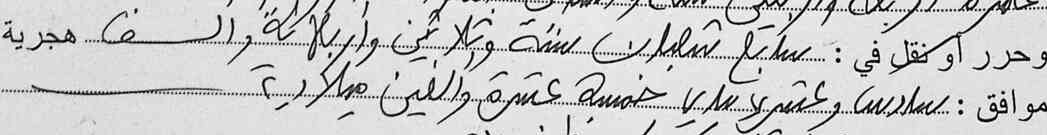 وحرر أو نقل في : سابع شعبان ستة وثلاثين وأربعمائة والـــف هجرية
موافق : سادس وعشرين ماي خمسة عشرة والفين ميلادية